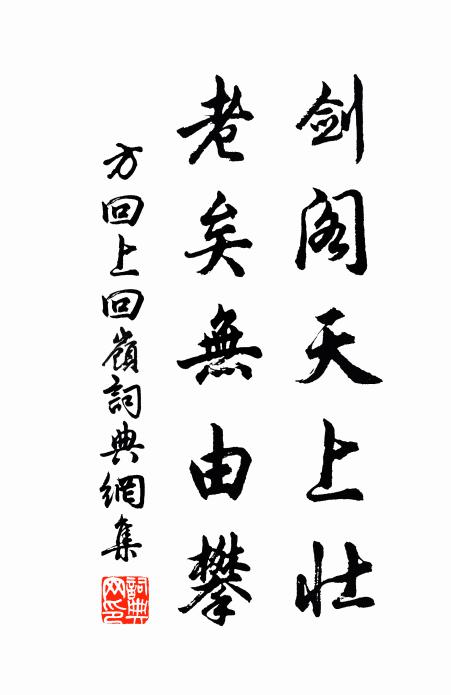 剑阁天上壮
老矣無由攀
方回上回嶺詞典網集
詞典网印